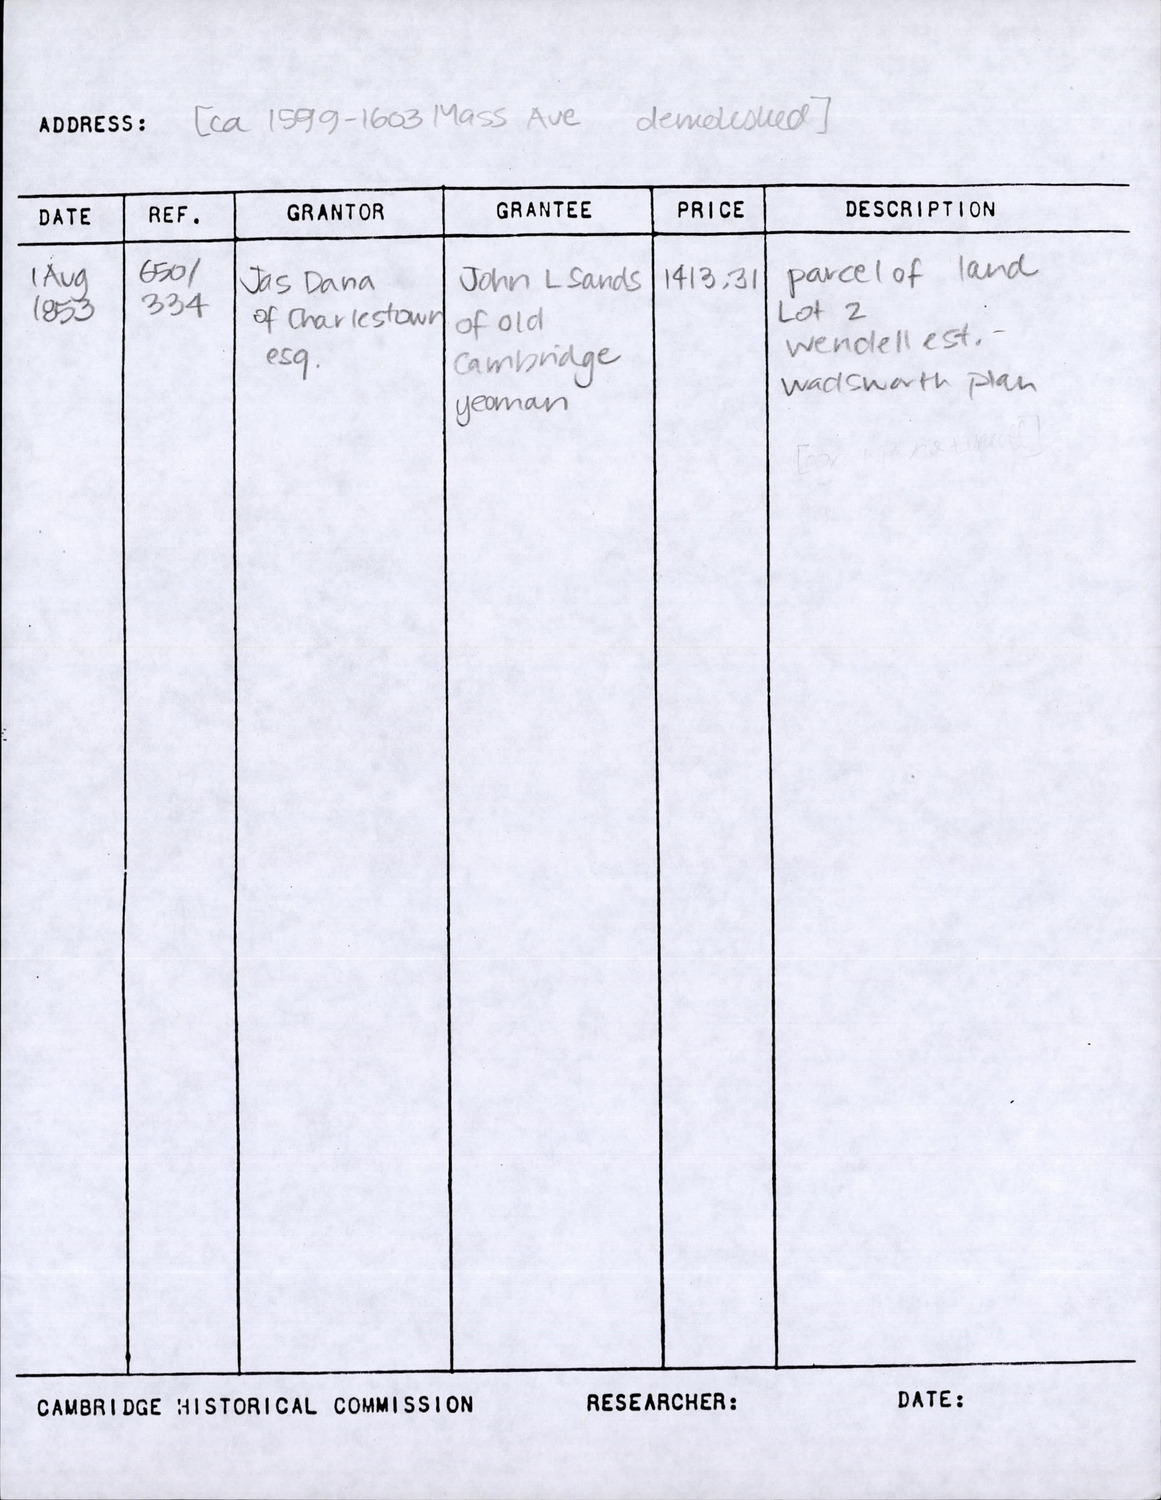 ADDRESS: [ca 1599-1603 Mass Ave demolished]
DATE REF. GRANTOR GRANTEE PRICE DESCRIPTION
1 Aug 1853
650/ 334
Jas Dana
of Charlestown
esq.
John L Sands
of old
Cambridge
yeoman
1413.31
parcel of land
Lot 2
Wendell est. -
Wadsworth plan
CAMBRIDGE HISTORICAL COMMISSION RESEARCHER: DATE: